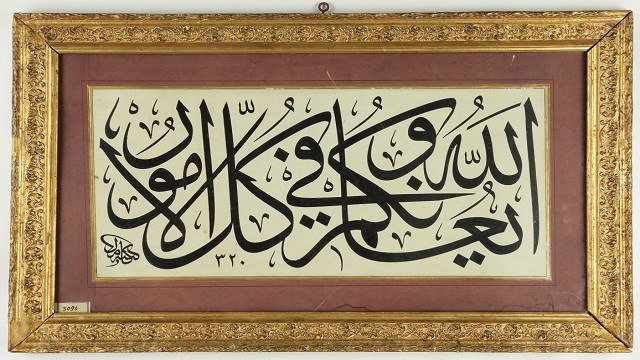 الله يعاونكم في كل الامور
٣٢٠
3096